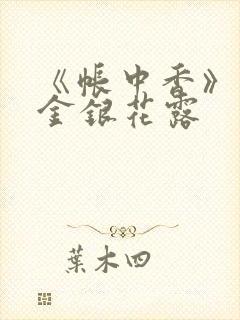 《帳中香》
金銀花露
葉木四